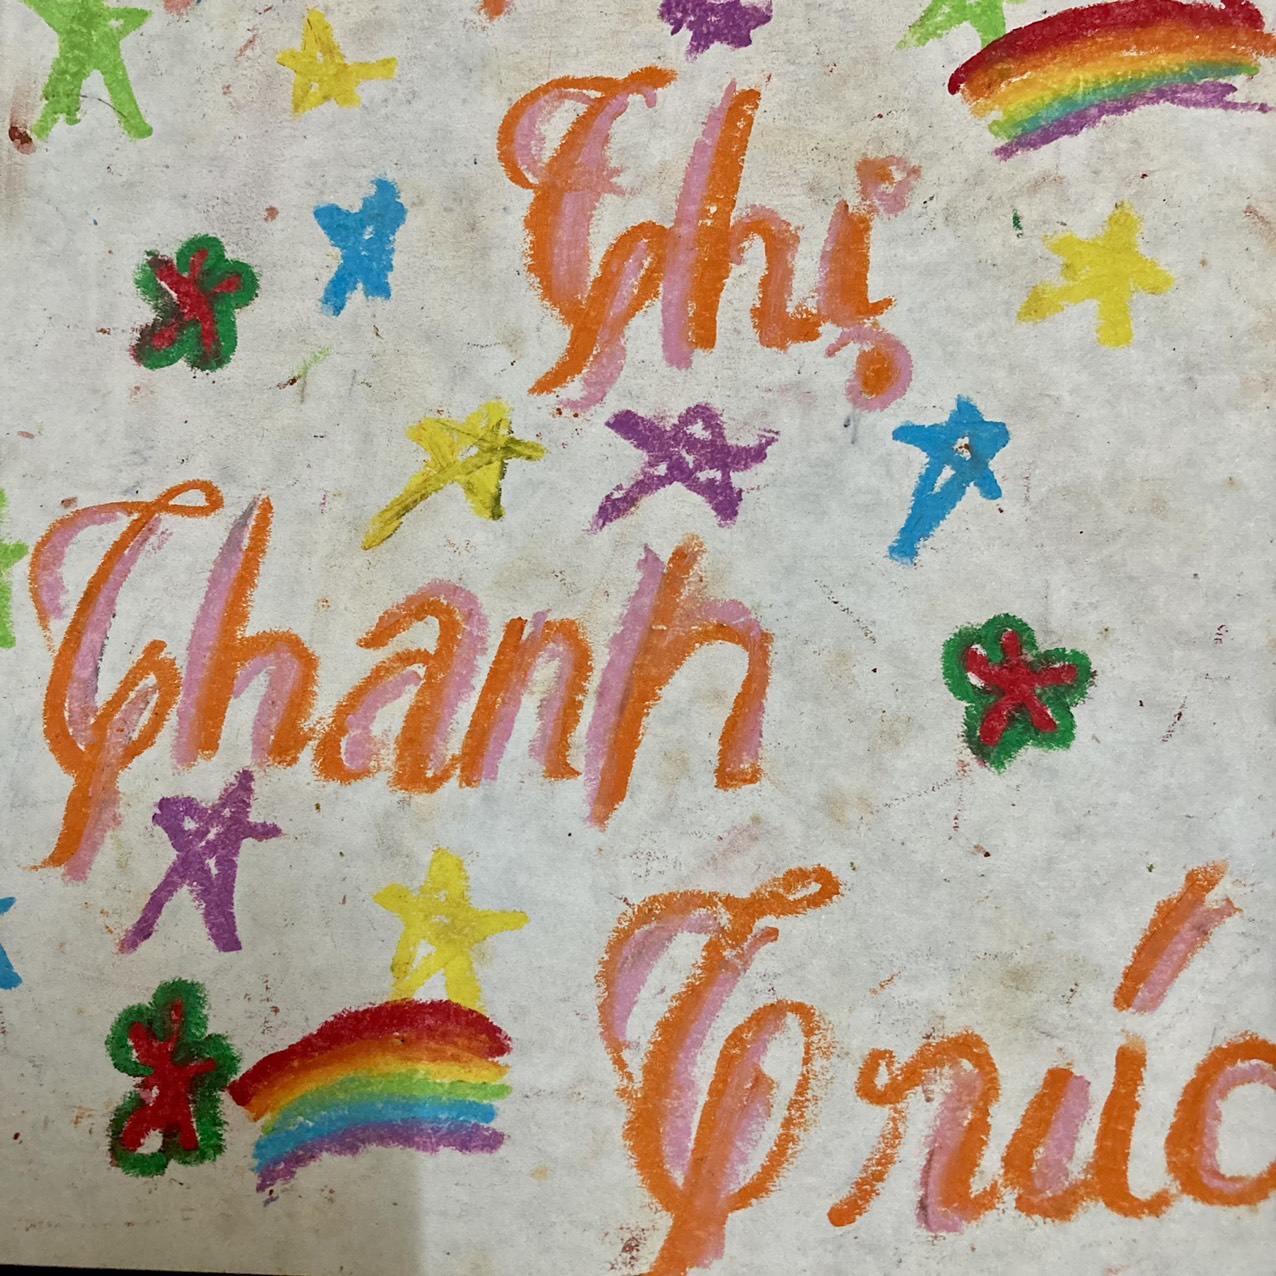 Thị
Thanh
Trúc